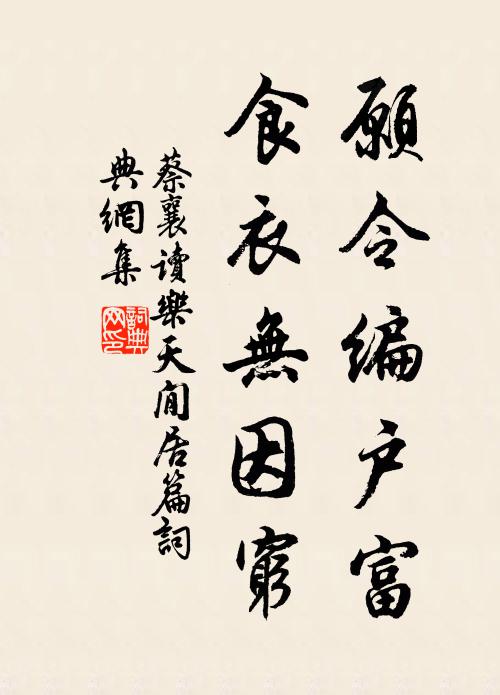 願令編户富
食衣無因窮
蔡襄讀樂天閒居篇詞
典網集
詞典
网印